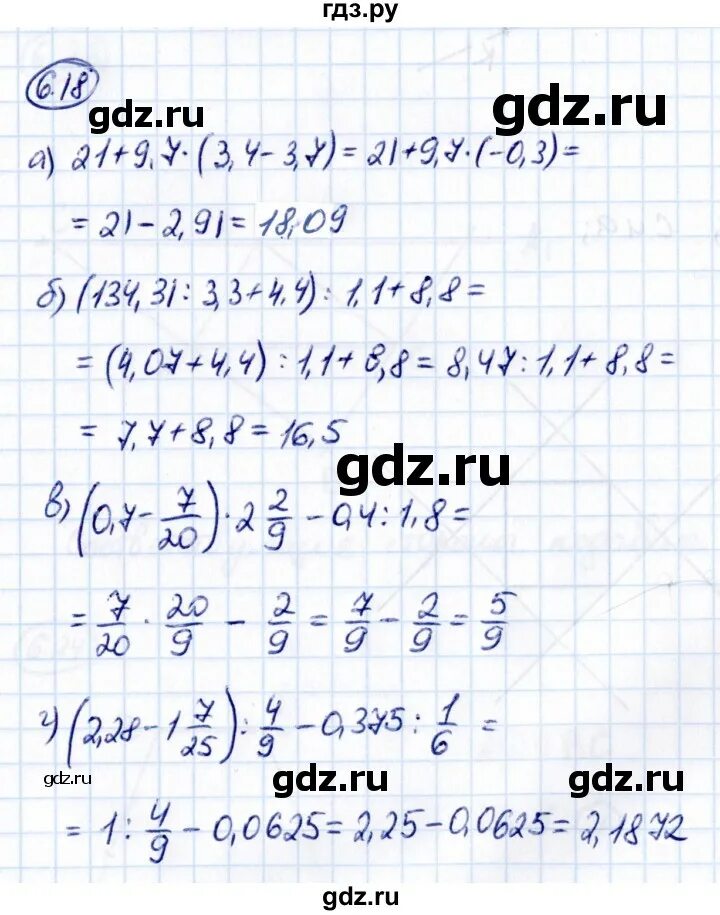 гдз.ру
6.18
gdz.ru gdz.ru
а) 21+9,7·(3,4-3,7)=21+9,7·(-0,3)=
=21-2,91=18,09
б) (134,31:3,3+4,4):1,1+8,8=
=(4,07+4,4):1,1+8,8=8,47:1,1+8,8=
=7,7+8,8=16,5
gdz.ru
в) (0,7-7/20)·2 2/9-0,4:1,8=
=7/20·20/9-2/9=7/9-2/9=5/9
г) (2,28-1 7/25):4/9-0,375:1/6=
gdz.ru gdz.ru gdz.ru
=1:4/9-0,0625=2,25-0,0625=2,1872
gdz.ru